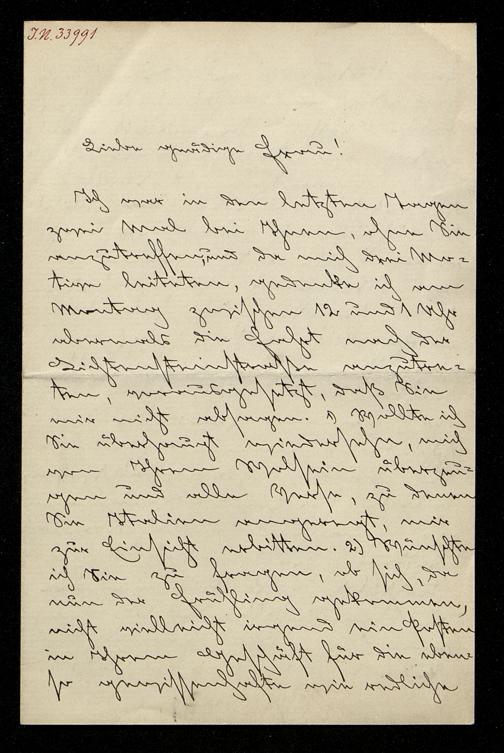 J.N. 33991
Liebe gnädige Frau!
Ich war in den letzten Tagen
zwei Mal bei Ihnen, ohne Sie
anzutreffen, und da mich drei Mo-
tive leiteten, gedenke ich am
Montag zwischen 12 und 1 Uhr
abermals die Fahrt nach der
Lichtensteinstrasse anzutre-
ten, vorausgesetzt, daß Sie
mir nicht absagen. Wollte ich
Sie überhaupt wiedersehn, mich
von Ihrem Wolsein überzeu-
gen und alle Verse, zu denen
Sie Italien angeregt, mir
zur Einsicht erbitten. 2) Wünschte
ich Sie zu fragen, ob sich, da
nun der Frühling gekommen,
nicht vielleicht irgend ein Posten
in Ihrem Geschäft für die eben-
so gewissenhafte wie redliche